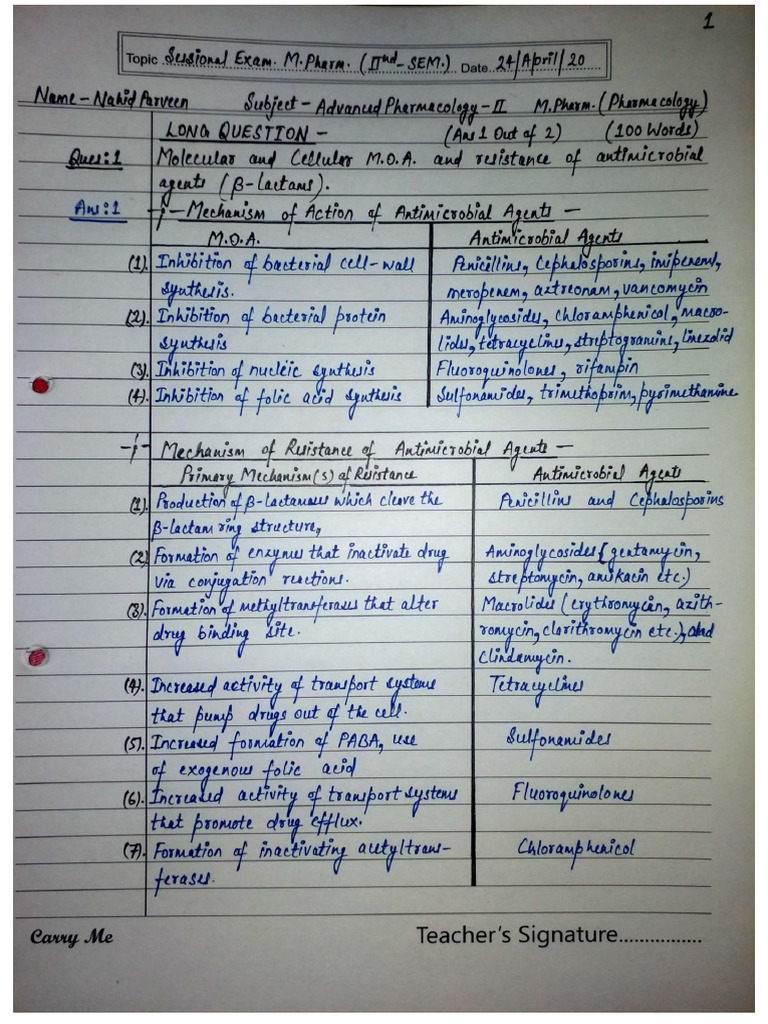 1
Topic Sessional Exam. M.Pharm. (IInd - SEM.) Date 24/April/20
Name - Nahid Parveen Subject - Advanced Pharmacology - II M.Pharm. (Pharmacology)
LONG QUESTION - (Ans 1 Out of 2) (100 Words)
Ques:1 Molecular and Cellular M.O.A. and resistance of antimicrobial
agents (β-lactams).
Ans:1 -/- Mechanism of Action of Antimicrobial Agents -
M.O.A. Antimicrobial Agents
(1). Inhibition of bacterial cell-wall Penicillins, Cephalosporins, imipenem,
synthesis. meropenem, aztreonam, vancomycin
(2). Inhibition of bacterial protein Aminoglycosides, chloramphenicol, macro-
synthesis lides, tetracyclines, streptogramins, linezolid
(3). Inhibition of nucleic synthesis Fluoroquinolones, rifampin
(4). Inhibition of folic acid synthesis Sulfonamides, trimethoprim, pyrimethamine
-/- Mechanism of Resistance of Antimicrobial Agents -
Primary Mechanism(s) of Resistance Antimicrobial Agents
(1). Production of β-lactamases which cleave the Penicillins and Cephalosporins
β-lactam ring structure,
(2) Formation of enzymes that inactivate drug Aminoglycosides (gentamycin,
via conjugation reactions. streptomycin, amikacin etc.)
(3). Formation of methyltransferases that alter Macrolides (erythromycin, azith-
drug binding site. romycin, clarithromycin etc.), and
Clindamycin.
(4). Increased activity of transport systems Tetracyclines
that pump drugs out of the cell.
(5). Increased formation of PABA, use Sulfonamides
of exogenous folic acid
(6). Increased activity of transport systems Fluoroquinolones
that promote drug efflux.
(7). Formation of inactivating acetyltrans- Chloramphenicol
ferases.
Carry Me Teacher's Signature................